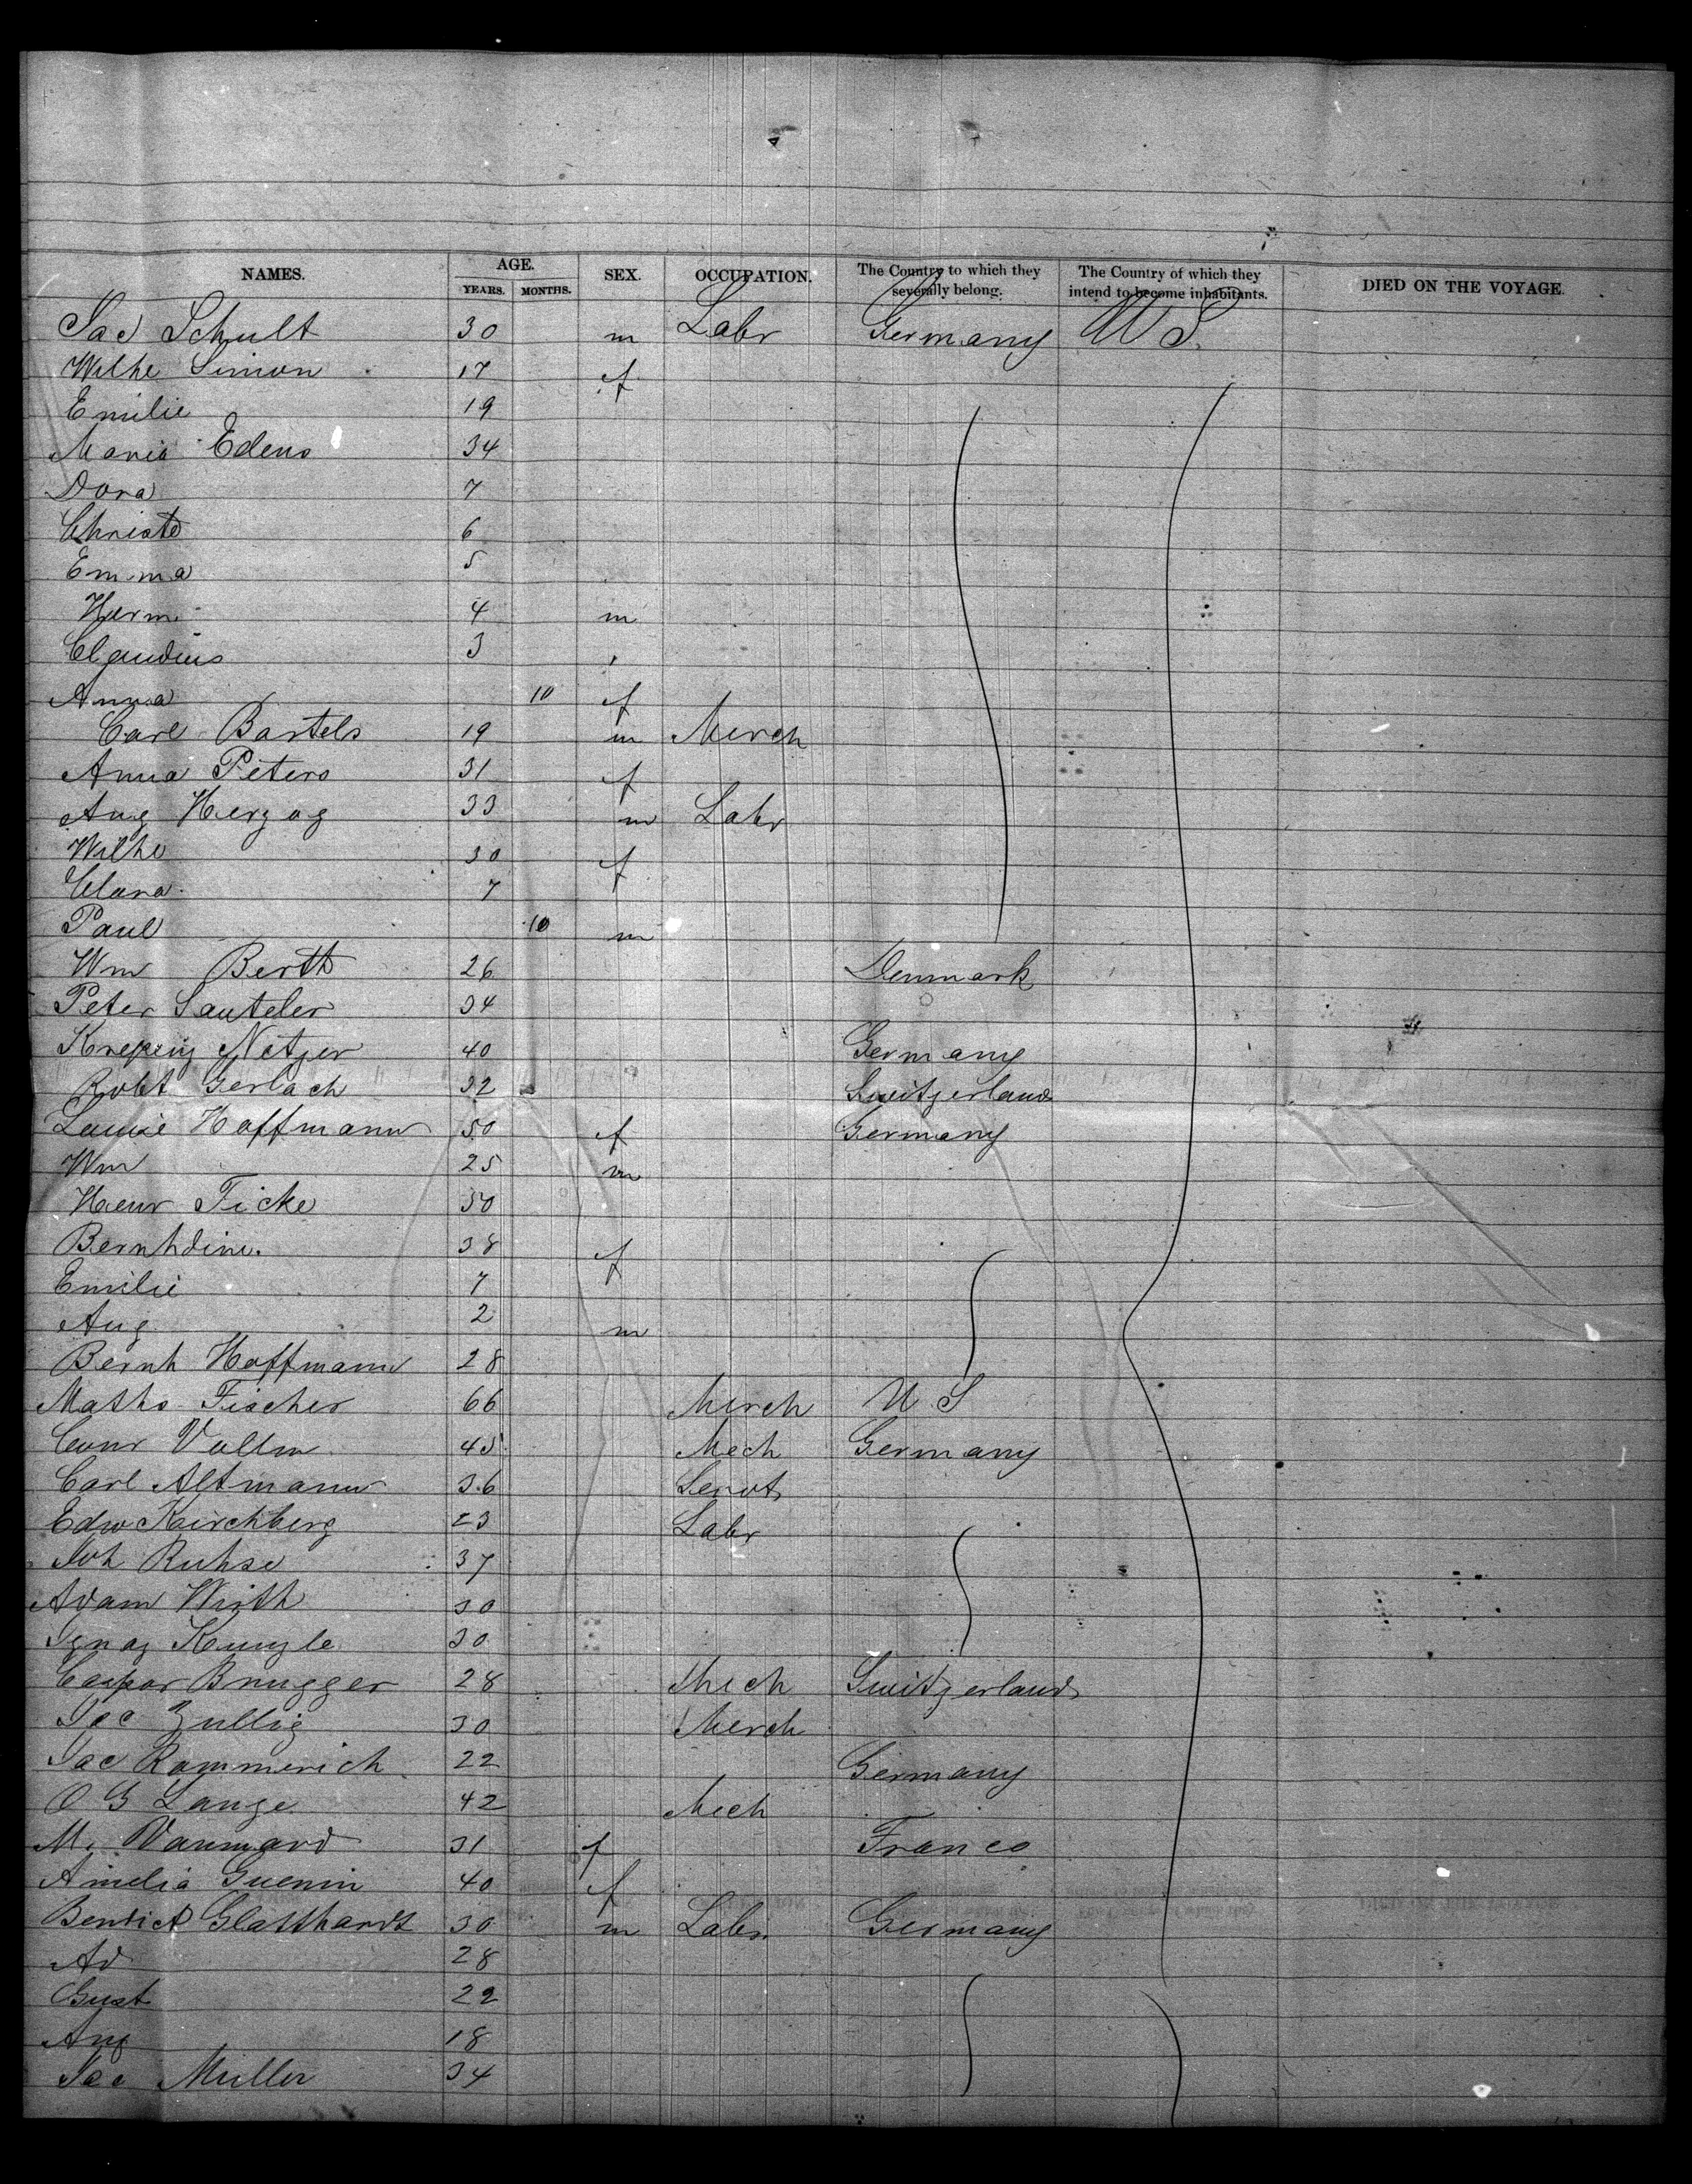 NAMES. AGE. SEX. OCCUPATION. The Country to which they severally belong. The Country of which they intend to become inhabitants. DIED ON THE VOYAGE.
YEARS. MONTHS.
Jac Schult 30 m Labr Germany U S.
Wilhe Simon 17 f
Emilie 19
Maria Edens 34
Dora 7
Christe 6
Emma 5
Herm. 4 m
Claudius 3 "
Anna 10 f
Carl Bartels 19 m Merch
Anna Peters 31 f
Aug Herzog 33 m Labr
Wilhe 30 f
Clara 7
Paul 10 m
Wm Berth 26 Denmark
Peter Sauteler 34
Netzer 40 Germany
Robt Gerlach 32 Switzerland
Louise Hoffmann 50 f Germany
Wm 25 m
Henr Ficke 50
Bernhdine. 38 f
Emilie 7
Aug 2 m
Bernh Hoffmann 28
Maths Fischer 66 Merch U S
Conr Vollm 45 Mech Germany
Carl Altmann 36 Servt
Edw Kirchberg 23 Labr
Joh Ruhse 37
Adam Wirth 30
Ignaz Kunzle 30
Caspar Brugger 28 Mech Switzerland
Jac Zullig 30 Merch
Jac Rommerich 22 Germany
O G Lange 42 Mech
M. 31 f France
Amelia Guenin 40 f
Benedict Glatthardt 30 m Labr. Germany
Ad 28
Gust 22
Aug 18
Jac Muller 34